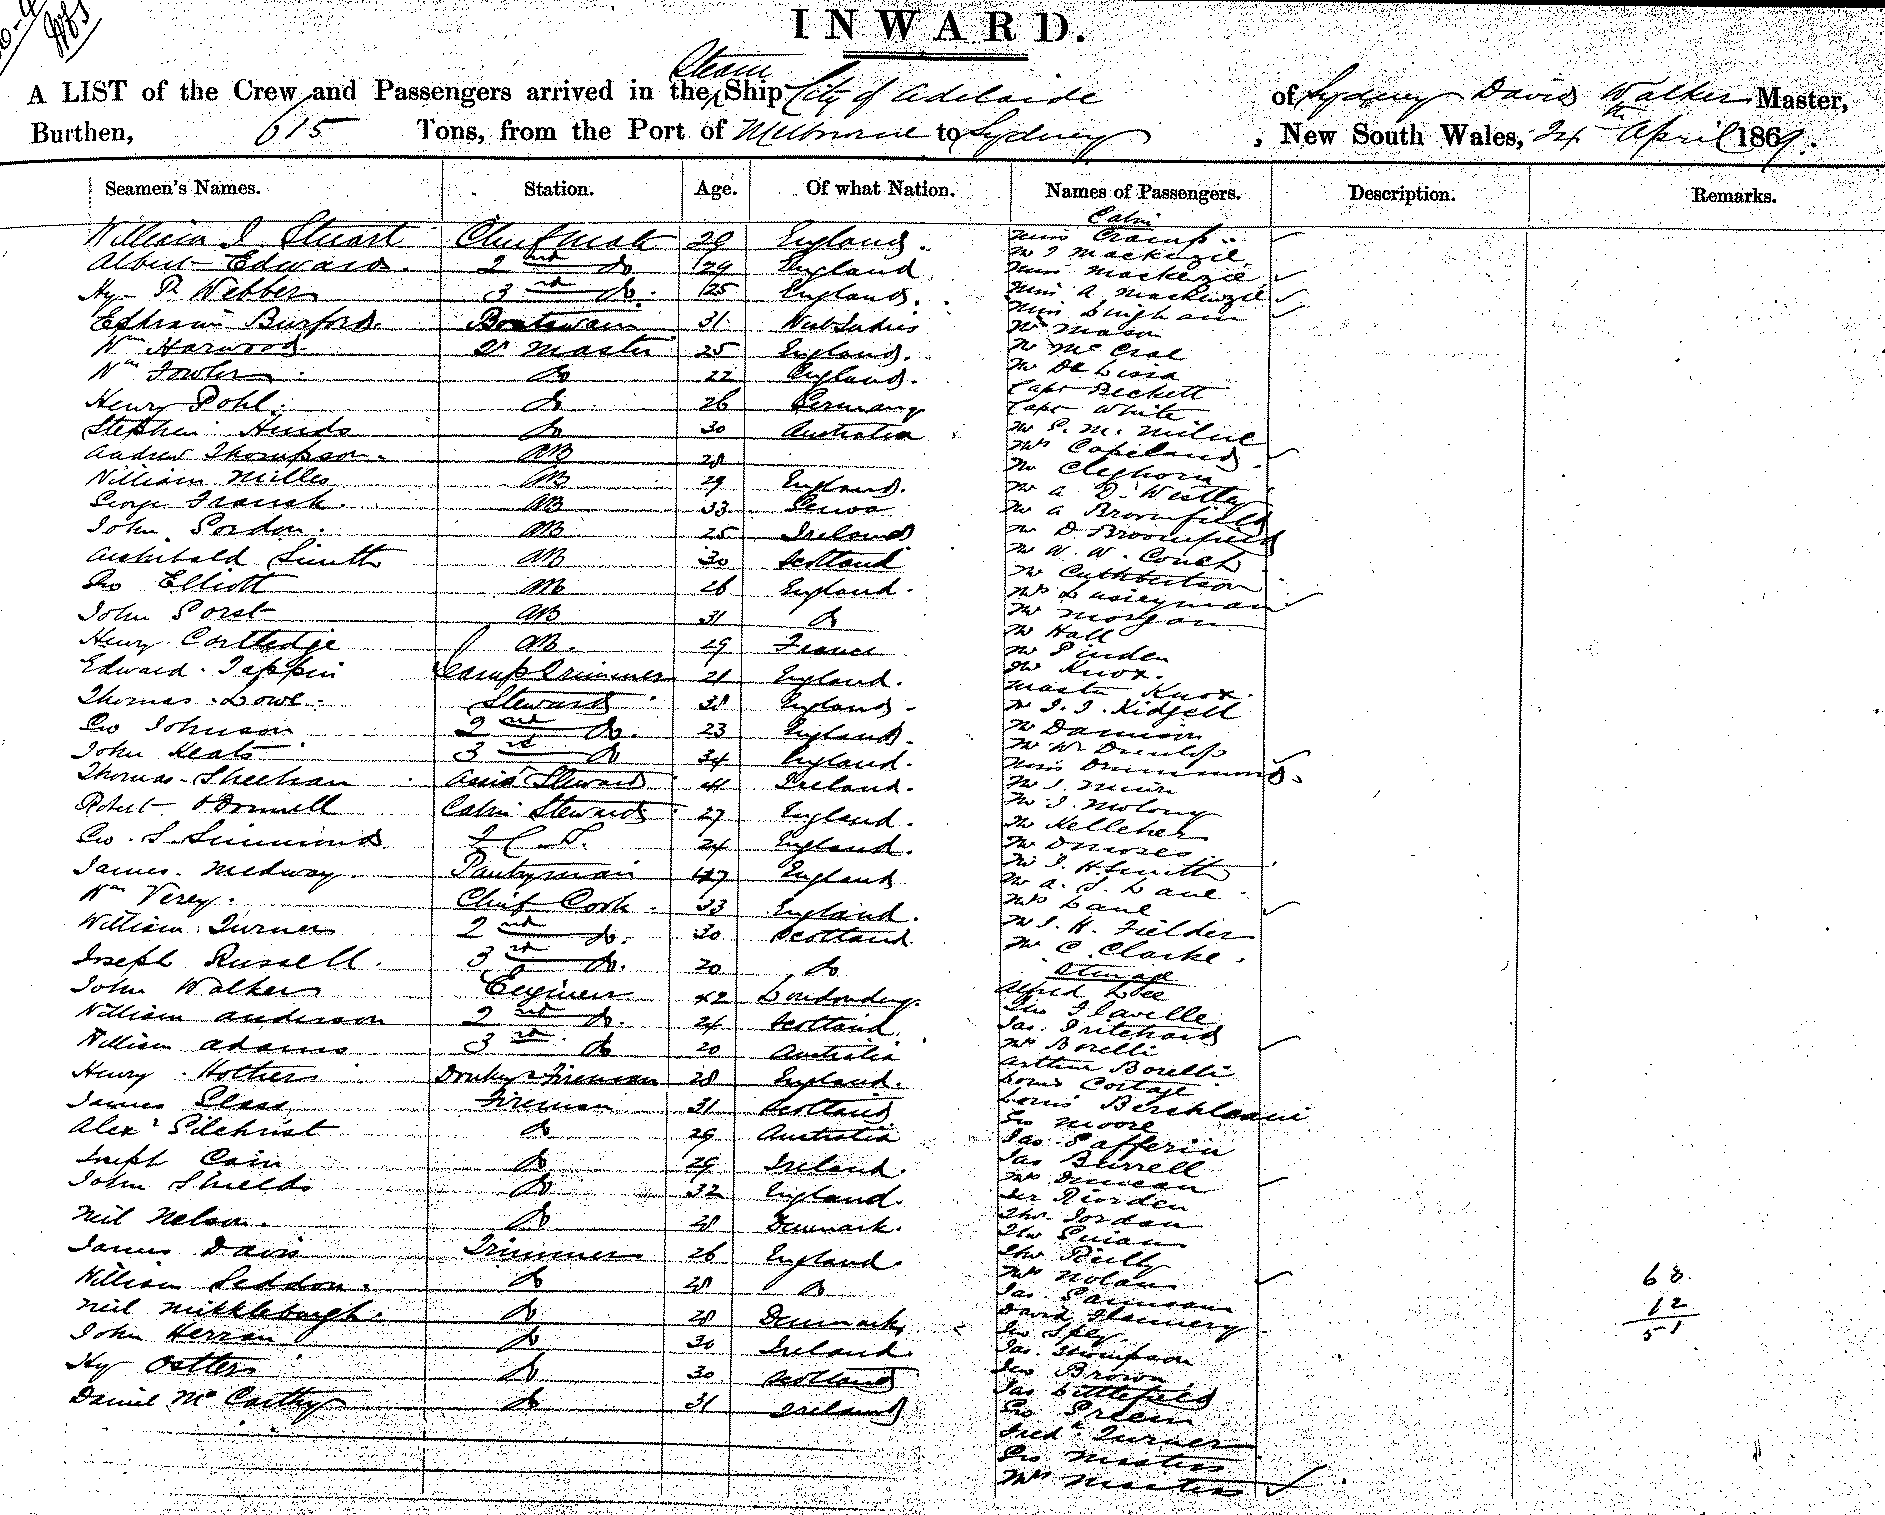 INWARD.
Steam
A LIST of the Crew and Passengers arrived in the Ship City of Adelaide of Sydney David Walker Master,
Burthen, 615 Tons, from the Port of Melbourne to Sydney, New South Wales, 24th April 1869.
Seamen's Names. Station. Age. Of what Nation. Names of Passengers. Description. Remarks.
William J Stuart Chief mate 29 England.
Albert Edward. 2nd Do 29 England
Hy P. Webber 3rd Do. 25 England.
Ephraim Burford. Boatswain 31 West Indies
Wm Harwood Qr Master 25 England.
Wm Fowler Do 22 England.
Henry Pohl. Do 26 Germany
Stephen Hinds Do 30 Australia
Andrew Thompson. AB 28
William Milles AB 29 England.
George French. AB 33
John Gordon. AB 25 Ireland
Archibald Smith AB 30 Scotland
Geo Elliott AB 26 England.
John Gorst AB 31 Do
Henry Cortledge AB. 29 France
Edward Tappin Lamp Trimmer 21 England.
Thomas Lowe Steward 38 England.
Geo Johnson 2nd Do. 23 England.
John Keats 3rd Do 34 England.
Thomas Sheehan Steward 41 Ireland.
Robert O'Donnell Cabin Steward 27 England.
Geo. S. Simmonds 24 England.
James Medway Pantryman 47 England
Wm Verey. Chief Cook. 33 England.
William Turner 2nd Do. 30 Scotland.
Joseph Russell. 3rd Do. 20 Do
John Walker Engineer 42 Londonderry.
William Anderson 2nd Do. 24 Scotland.
William Adams 3rd Do 20 Australia
Henry Hothers Donkey & Fireman 28 England.
James Glass Fireman 31 Scotland
Alexr Gilchrist Do 29 Australia
Joseph Cain Do 29 Ireland.
John Shields Do 32 England.
Neil Nelson. Do 28 Denmark.
James Davis Trimmer 26 England.
William Seddon. Do 28 Do
Neil Mickleburgh. Do 28 Denmark
John Herran Do 30 Ireland.
Hy Ostlers Do 30 Scotland
Daniel McCarthy Do 31 Ireland
Cabin
Miss Cramp
Mr J Mackenzie
Miss Mackenzie
Miss A Mackenzie
Miss Bingham
Mr Mason
Mr McCrae
Mr De Lissa
Capt Beckett
Capt White
Mr G. M. Milne
Mrs Copeland
Mr Cleghorn
Mr A. D. Westley
Mr A Broomfield
Mr D Broomfield
Mr W. W. Couch
Mr Cuthbertson
Mrs
Mr Morgan
Mr Hall
Mr Pinden
Mr Knox.
Master Knox.
Mr J. J. Kidgell
Mr Davison
Mr Wm Dunlop
Miss Drummond.
Mr J. Muir
Mr J. Molony
Mr Kelleher
Mr D Moses
Mr J. H. Smith
Mr A. S. Lane
Mrs Lane
Mr J. H. Fielder
Mr C. Clarke.
Steerage
Alfred Lee
Jas. Pritchard
Mrs Borelli
Arthur Borelli
Louis Cortage
Louis
Geo Moore
Jas Safferin
Jas Burrell
Mrs Duncan
Jer Riorden
Tho. Jordan
Tho
Tho Reilly
Mrs Nolan
Jas.
David Flannery
Jas. Thompson
Jno Brown
Jas Littlefield
Geo
Fredk Turner
Geo Masters
Mrs Masters
63
12
51